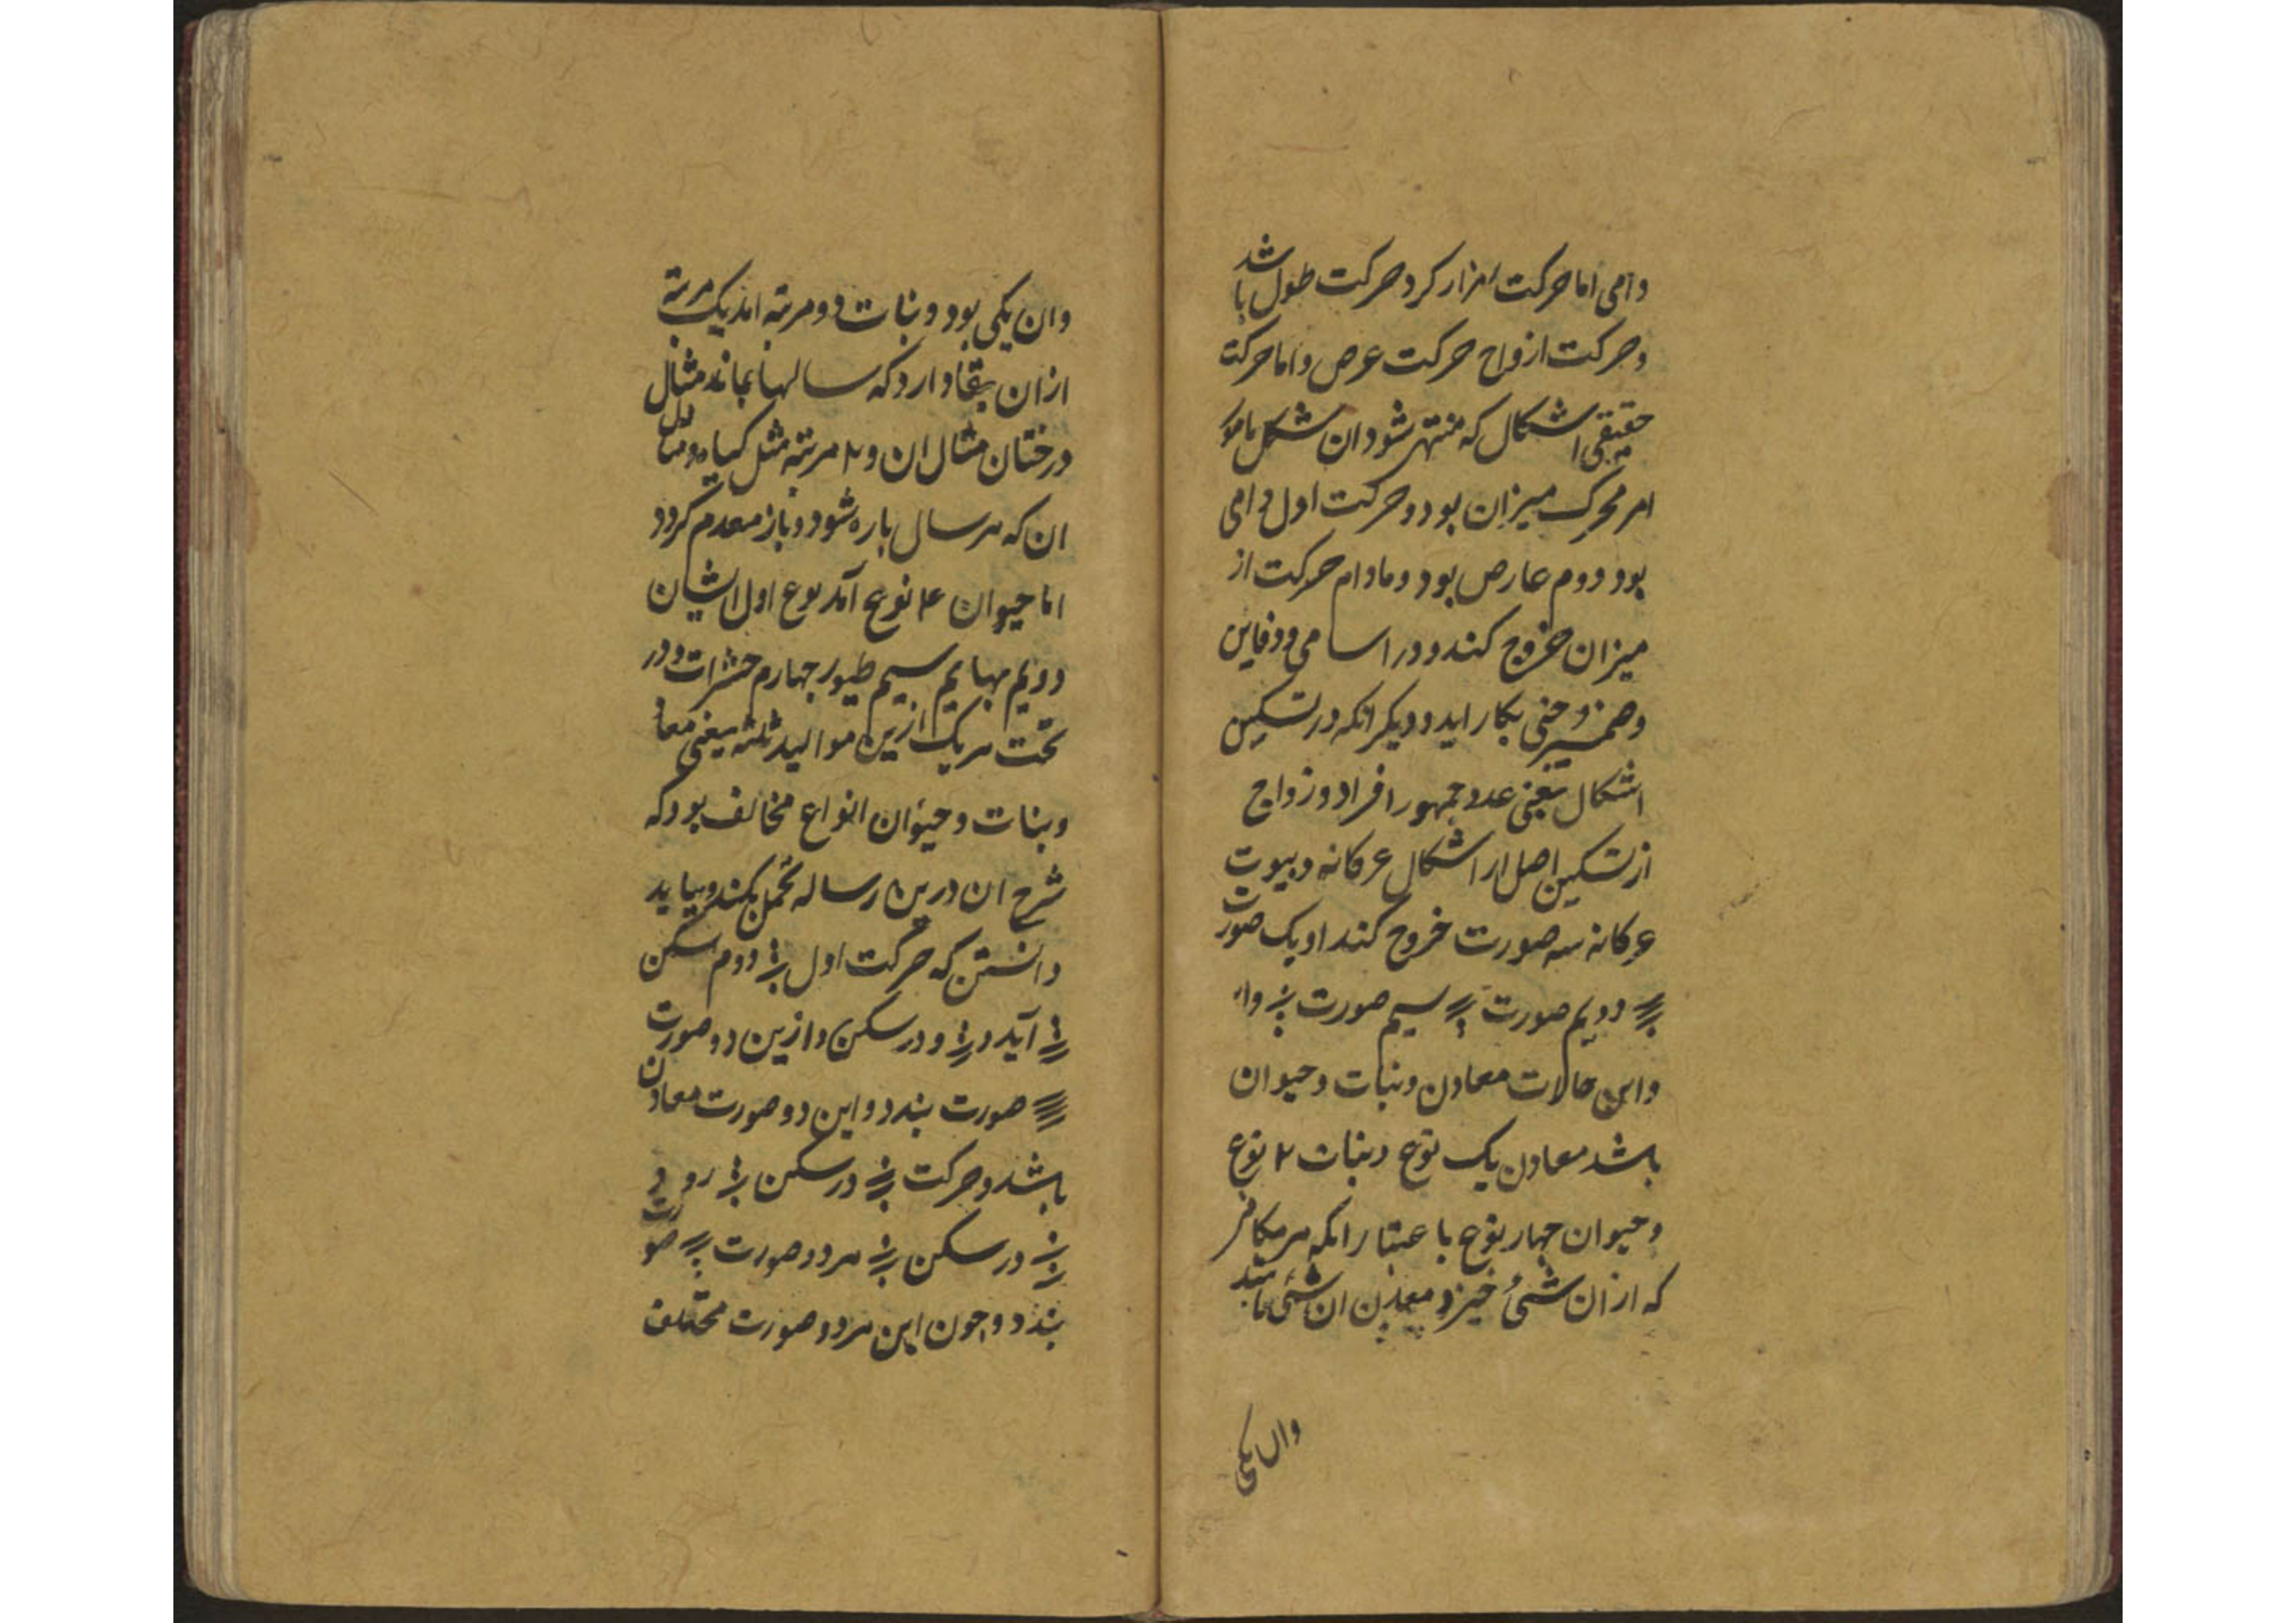 دامی اما حرکت افراد کرد حرکت طول باشد
و حرکت ازواج حرکت عرض و اما حرکة
حقیقی اشکال که منتهی شود ان شکل
امر محرک میزان بود و حرکت اول دامی
بود دوم عارض بود و مادام حرکت از
میزان خروج کند و در اسامی و دفاین
و ضمیر و خبی بکار اید و دیگر انکه در تسکین
اشکال یعنی عدد جمهور افراد و زواج
از تسکین اصل ار اشکال عرکانه و بیوت
عرکانه سه صورت خروج کند او یک صورت
دویم صورت سیم صورت وا
واین حالات معادن و نبات و حیوان
باشد معادن یک نوع و نبات ۲ نوع
و حیوان چهار نوع با عتبار انکه هر مکان
که از ان شئ خیزد معدن ان شئ باشد
وان یکی
وان یکی بود و نبات دو مرتبه امد یک مرتبه
ازان بقا دارد که سالها بماند مثال
درختان مثال ان و ۲ مرتبه مثل کیاه و مثال
ان که هر سال باره شود و باز معدم کردد
اما حیوان ۴ نوع آمد نوع اول انشان
دویم بهایم سیم طیور جهارم حشرات و در
تحت هر یک ازین موالید ثلثه یعنی معا
و نبات و حیوان انواع مخالف بود که
شرح ان درین رساله تحمل نکند و بباید
دانستن که حرکت اول دوم سکن
آید در و در سکن و ازین دو صورت
صورت بندد و این دو صورت معادن
باشد و حرکت در سکن رود و
در سکن هر دو صورت صورت
بندد و جون این هر دو صورت مختلف